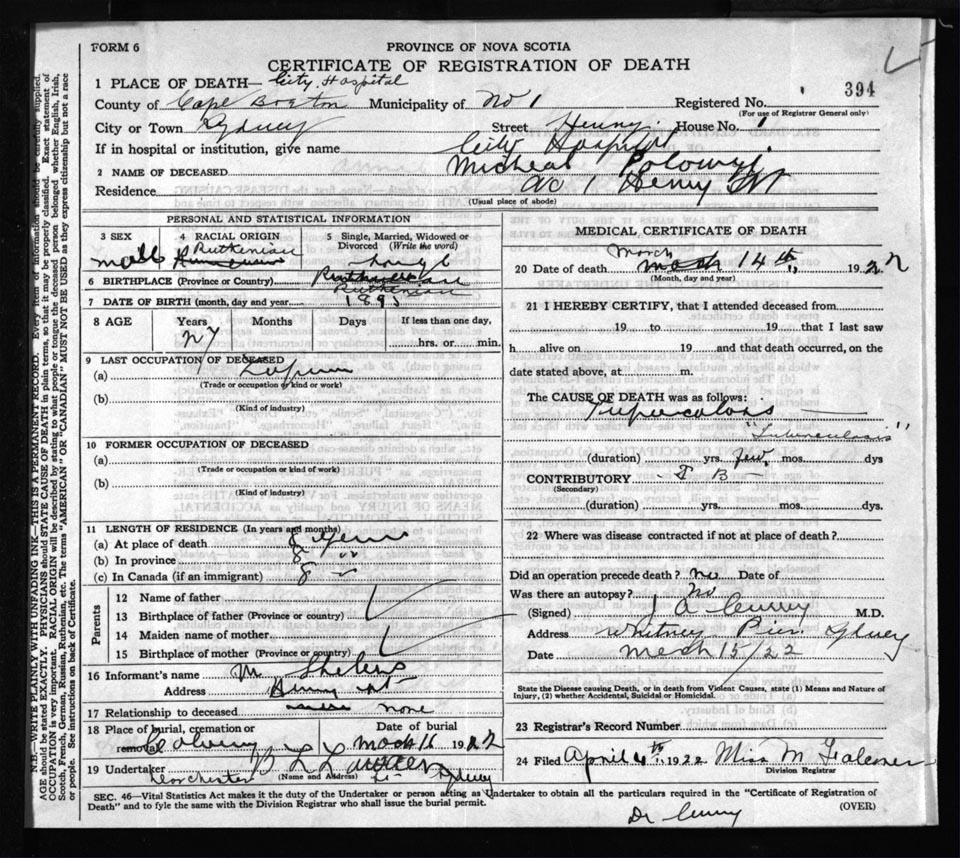 FORM 6
PROVINCE OF NOVA SCOTIA
CERTIFICATE OF REGISTRATION OF DEATH
394
1 PLACE OF DEATH— City Hospital
County of Cape Breton Municipality of No 1 Registered No.
(For use of Registrar General only)
City or Town Sydney Street Henny. House No. 1
If in hospital or institution, give name City Hospital
2 NAME OF DECEASED Micheal
Residence No 1 Henny St
(Usual place of abode)
PERSONAL AND STATISTICAL INFORMATION
3 SEX
male
4 RACIAL ORIGIN
Ruthenian
5 Single, Married, Widowed or Divorced (Write the word)
6 BIRTHPLACE (Province or Country) Ruthenian
7 DATE OF BIRTH (month, day and year) 1895
8 AGE Years Months Days If less than one day,
27 hrs. or min.
9 LAST OCCUPATION OF DECEASED
(a)
(Trade or occupation or kind or work)
(b)
(Kind of industry)
10 FORMER OCCUPATION OF DECEASED
(a)
(Trade or occupation or kind of work)
(b)
(Kind of industry)
11 LENGTH OF RESIDENCE (In years and months)
(a) At place of death 8 years
(b) In province 8 "
(c) In Canada (if an immigrant) 8 "
Parents
12 Name of father
13 Birthplace of father (Province or country)
14 Maiden name of mother
15 Birthplace of mother (Province or country)
16 Informant's name M
Address Henny St
17 Relationship to deceased none
18 Place of burial, cremation or removal Date of burial
March 16 1922
19 Undertaker
(Name and Address)
Dorchester St Sydney
MEDICAL CERTIFICATE OF DEATH
20 Date of death March 14th, 1922
(Month, day and year)
21 I HEREBY CERTIFY, that I attended deceased from
19 to 19 that I last saw
h alive on 19 and that death occurred, on the
date stated above, at m.
The CAUSE OF DEATH was as follows:
"Tuberculosis"
(duration) yrs. few mos. dys
CONTRIBUTORY T B
(Secondary)
(duration) yrs. mos. dys.
22 Where was disease contracted if not at place of death?
Did an operation precede death? no Date of
Was there an autopsy? No
(Signed) M.D.
Address Whitney Pier Sydney
Date March 15/22
State the Disease causing Death, or in death from Violent Causes, state (1) Means and Nature of
Injury, (2) whether Accidental, Suicidal or Homicidal.
23 Registrar's Record Number
24 Filed April 4th, 1922 Miss M Falconer
Division Registrar
SEC. 46—Vital Statistics Act makes it the duty of the Undertaker or person acting as Undertaker to obtain all the particulars required in the "Certificate of Registration of
Death" and to fyle the same with the Division Registrar who shall issue the burial permit.
(OVER)
N.B.—WRITE PLAINLY WITH UNFADING INK—THIS IS A PERMANENT RECORD. Every item of information should be carefully supplied.
AGE should be stated EXACTLY. PHYSICIANS should STATE CAUSE OF DEATH in plain terms, so that it may be properly classified. Exact statement of
OCCUPATION is very important. RACIAL ORIGIN will be described by stating to what people or tongue the deceased person belonged whether English, Irish,
Scotch, French, German, Russian, Ruthenian, etc. The terms "AMERICAN" OR "CANADIAN" MUST NOT BE USED as they express citizenship but not a race
or people. See instructions on back of Certificate.